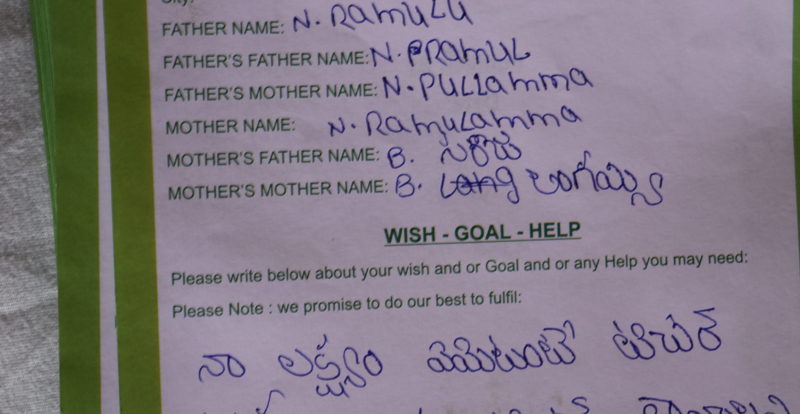 FATHER NAME: N. RAMULU
FATHER'S FATHER NAME: N. PRAMUL
FATHER'S MOTHER NAME: N. PULLAMMA
MOTHER NAME: N. RAMULAMMA
MOTHER'S FATHER NAME: B.
MOTHER'S MOTHER NAME: B.
WISH - GOAL - HELP
Please write below about your wish and or Goal and or any Help you may need:
Please Note : we promise to do our best to fulfil:
నా లక్ష్యం ఏమిటంటే టీచర్